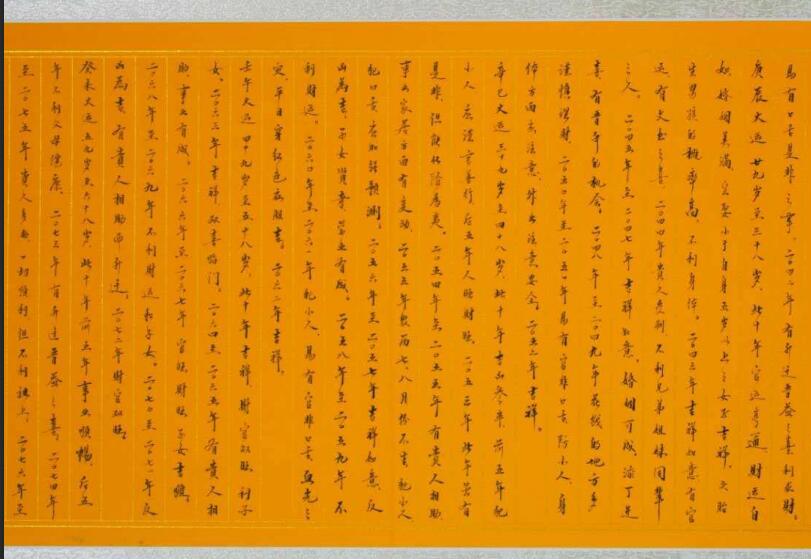 易有口舌是非之事。二〇四二年有升迁晋爵之喜利求财。
庚辰大运廿九岁至三十八岁,此十年官运亨通财运自
如,婚姻美满,宜娶小于自身五岁以上之女子吉祥。头胎
生男孩的概率高,不利身体。二〇四三年吉祥如意有官
运有文书之喜,二〇四四年贵人受制不利兄弟姐妹同辈
之人。二〇四五年至二〇四七年吉祥如意,婚姻可成,添丁进
喜有晋升的机会。二〇四八年至二〇四九年花钱的地方多
谨慎理财。二〇五〇年至二〇五一年易有官非口舌,防小人,身
体方面去注意,外出注意安全。二〇五二年吉祥。
辛巳大运三十九岁至四十八岁,此十年吉凶参半,前五年犯
小人,应谨言善行后五年人旺财旺。二〇五三年此年若有
是非,但能化险为夷。二〇五四年至二〇五五年有贵人相助
事业家居方面有变动,二〇五五年农历七、八月份不吉,犯小人
犯口舌,应加强预测。二〇五六年至二〇五七年吉祥如意,反
凶为吉,子女贤孝,学业有成。二〇五八年至二〇五九年不
利财运。二〇六〇年至二〇六一年犯小人,易有官非口舌,血光之
灾,平日穿红色衣服吉。二〇六二年吉祥。
壬午大运四十九岁至五十八岁,此十年吉祥,财官双旺,利子
女。二〇六三年吉祥,双喜临门。二〇六四至二〇六五年有贵人相
助,事业有成。二〇六六年至二〇六七年官旺财旺,子女吉健。
二〇六八年至二〇六九年不利财运和子女。二〇七〇至二〇七一年反
凶为吉,有贵人相助而升迁。二〇七二年财官双旺。
癸未大运五九岁至六十八岁,此十年前五年事业顺畅,后五
年不利父母健康。二〇七三年有升迁晋爵之喜,二〇七四年
至二〇七五年贵人多助,一切顺利但不利 上。二〇七六年至